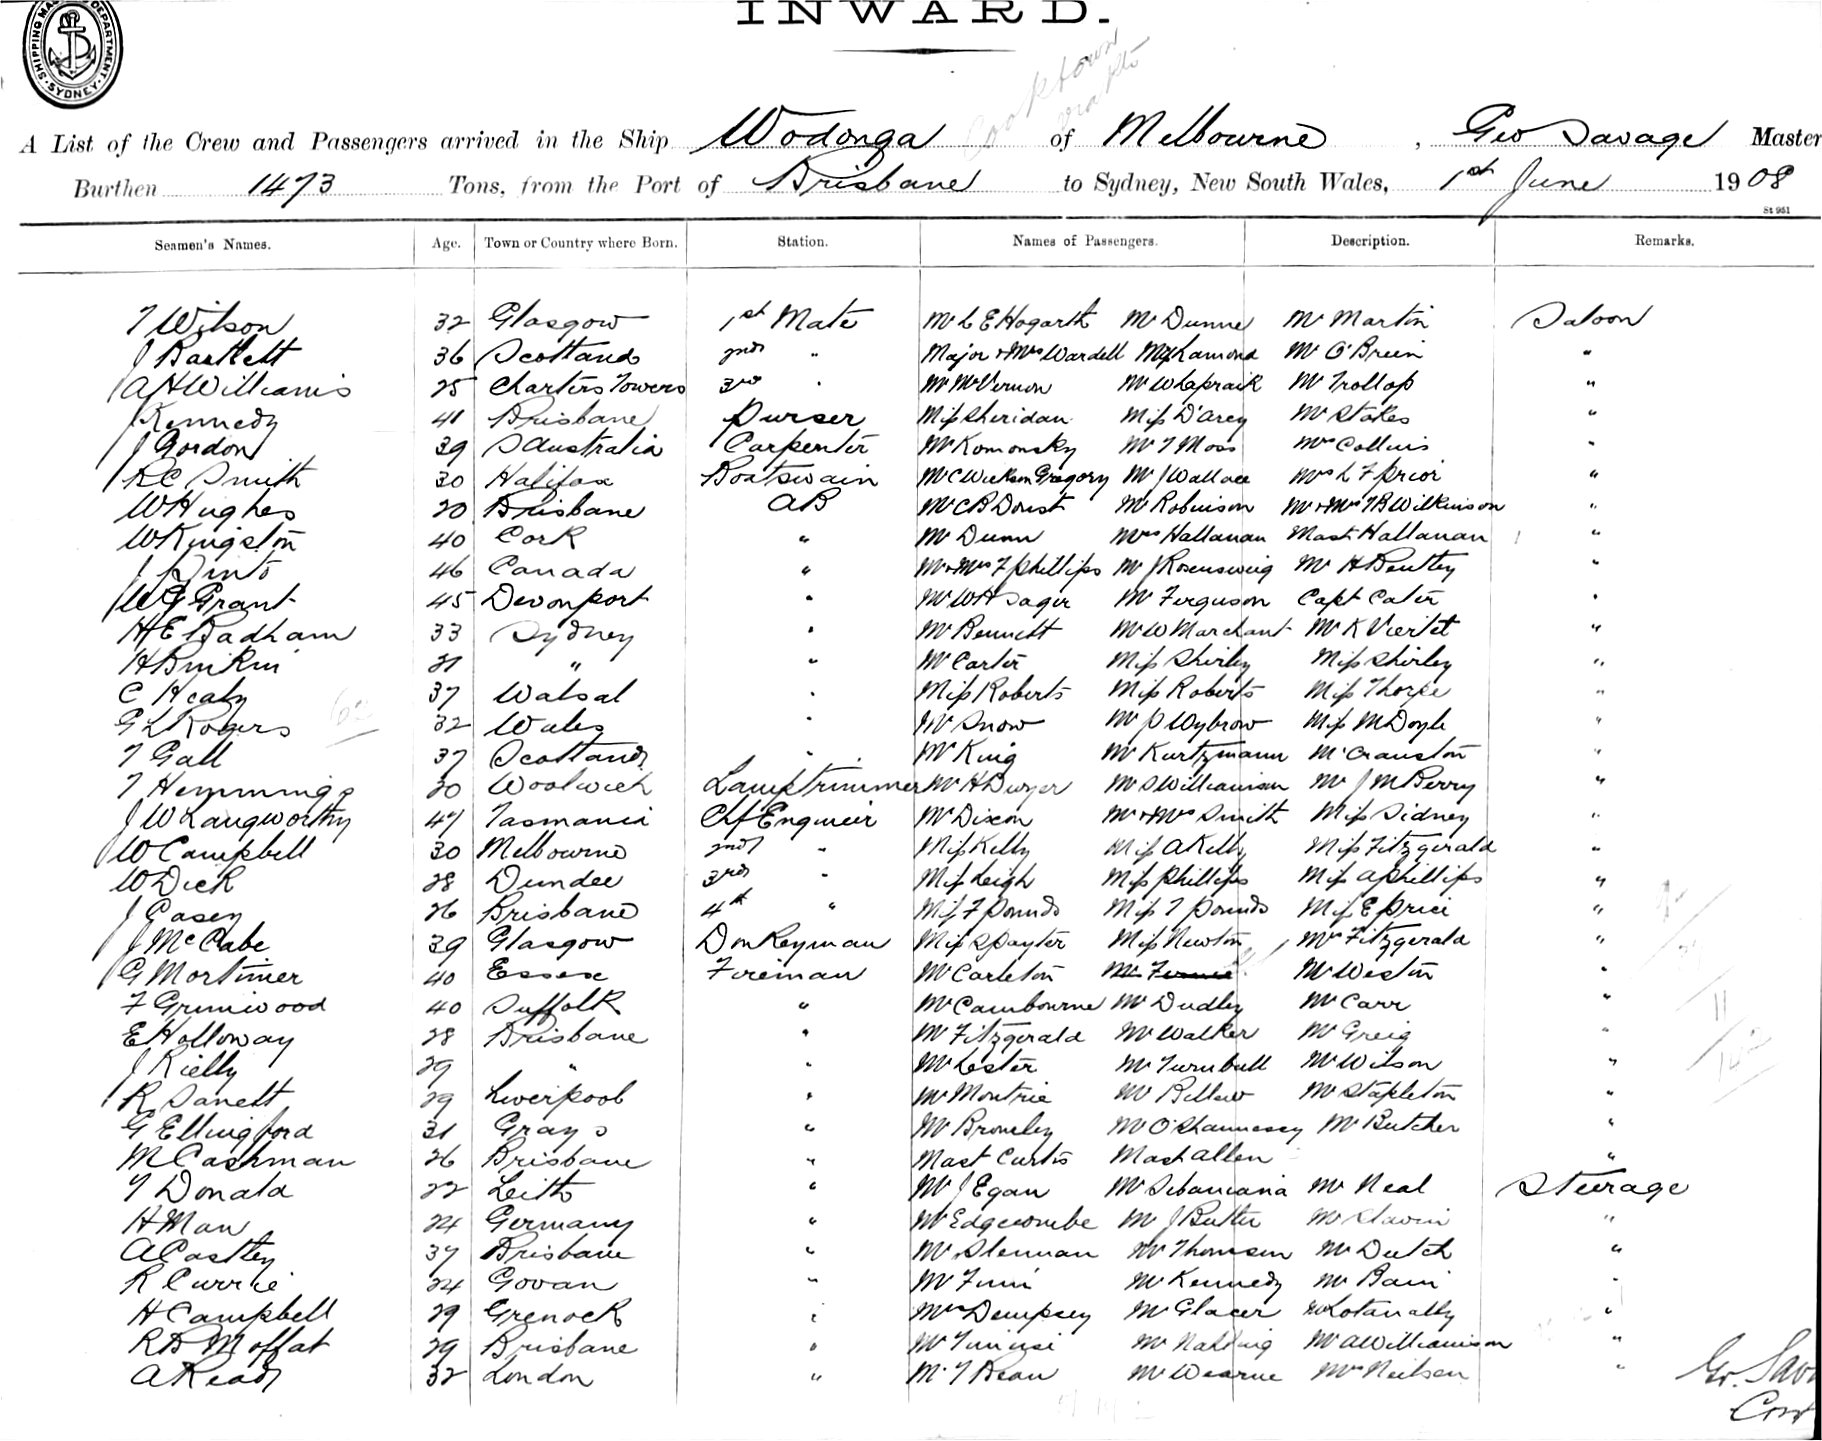 INWARD.
SHIPPING MASTER'S DEPARTMENT SYDNEY
Cooktown
via pts
A List of the Crew and Passengers arrived in the Ship Wodonga of Melbourne, Geo Savage Master
Burthen 1473 Tons, from the Port of Brisbane to Sydney, New South Wales, 1st June 1908
St 951
Seamen's Names. Age. Town or Country where Born. Station. Names of Passengers. Description. Remarks.
T Wilson 32 Glasgow 1st Mate Mr L E Hogarth Mr Dunne Mr Martin Saloon
J Bartlett 36 Scotland 2nd " Major & Mrs Wardell Lamond Mr O'Brien "
A H Williams 25 Charters Towers 3rd " Mr McVernon Mr W Lapraik Mr Trollop "
Kennedy 41 Brisbane Purser Miss Sheridan Miss D'Arcy Mr Stokes "
J Gordon 39 S Australia Carpenter Mr Komonsky Mr T Moss Mrs Collins "
R C Smith 30 Halifax Boatswain Mr C Gregory Mr J Wallace Mrs L F Prior "
W Hughes 20 Brisbane AB Mr C B Doust Mr Robinson Mr & Mrs T B Wilkinson "
W Kingston 40 Cork " Mr Dunn Mrs Hallanan Mast Hallanan "
J Pinto 46 Canada " Mr & Mrs F Phillips Mr J Rosenswig Mr H Bentley "
W G Grant 45 Devonport " Mr W H Sager Mr Ferguson Capt Cater "
H E Badham 33 Sydney " Mr Bennett Mr W Marchant Mr K Viertet "
H 21 " " Mr Carter Miss Shirley Miss Shirley "
C Healy 37 Walsal " Miss Roberts Miss Roberts Miss Thorpe "
G L Rogers 32 Wales " Mr Snow Mr P Wybrow Miss M Doyle "
T Gall 37 Scotland " Mr King Mr Kurtzmann Mr Cranston "
T Hemmings 20 Woolwich Lamptrimmer Mr H Dwyer Mr S Williamson Mr J M Berry "
J W Langworthy 47 Tasmania Chf Engineer Mr Dixon Mr & Mrs Smith Miss Sidney "
W Campbell 30 Melbourne 2nd " Miss Kelly Miss A Kelly Miss Fitzgerald "
W Dick 28 Dundee 3rd " Miss Leigh Miss Phillips Miss A Phillips "
J Casey 26 Brisbane 4th " Miss F Pounds Miss T Pounds Miss E Price "
J McCabe 39 Glasgow Donkeyman Miss S Payter Miss Newton Mrs Fitzgerald "
G Mortimer 40 Essex Fireman Mr Carleton Mr Weston "
F Grimwood 40 Suffolk " Mr Cambourne Mr Dudley Mr Carr "
E Holloway 28 Brisbane " Mr Fitzgerald Mr Walker Mr Greig "
J Kielly 29 " " Mr Lester Mr Turnbull Mr Wilson "
R Sanett 29 Liverpool " Mr Montrie Mr Bellew Mr Stapleton "
G Ellingford 31 Grays " Mr Bromley Mr O'Shannessy Mr Butcher "
M Cashman 26 Brisbane " Mast Curtis Mast Allen "
T Donald 22 Leith " Mr J Egan Mr Neal Steerage
H Man 24 Germany " Mr Edgecombe Mr J Butler Mr Slavin "
A Castley 37 Brisbane " Mr Slennan Mr Thomsen Mr Dutch "
R Currie 24 Govan " Mr Finn Mr Kennedy Mr Bain "
H Campbell 29 Grenock " Mrs Dempsey Mr Glacer "
R B Moffat 29 Brisbane " Mr Mr Nahring Mr A Williamson "
A Read 32 London " Mr T Bean Mr Wearne Mr Neilsen "